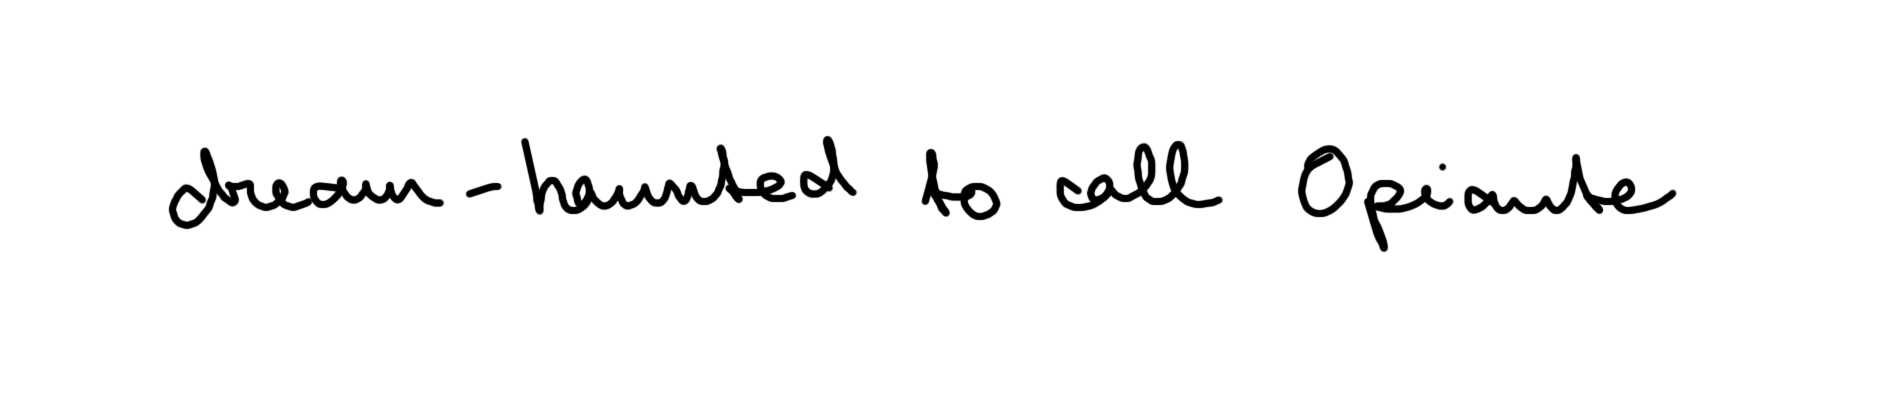 dream-haunted to call Opiante